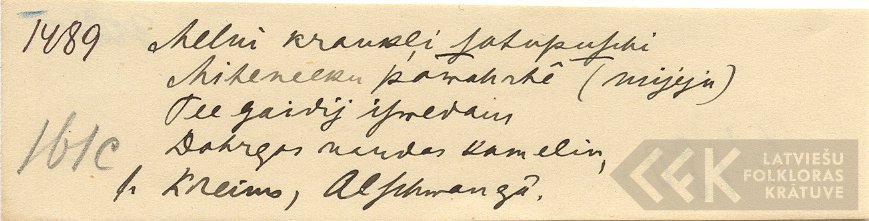 1489 Melni kraukļi satupuschi
Miteneeku pawahrtê (mijejn)
Tee gaidij iswedam
161c Dahrgas naudas kamolin,
Kreims, Alschwangâ.
LATVIEŠU
FOLKLORAS
KRĀTUVE